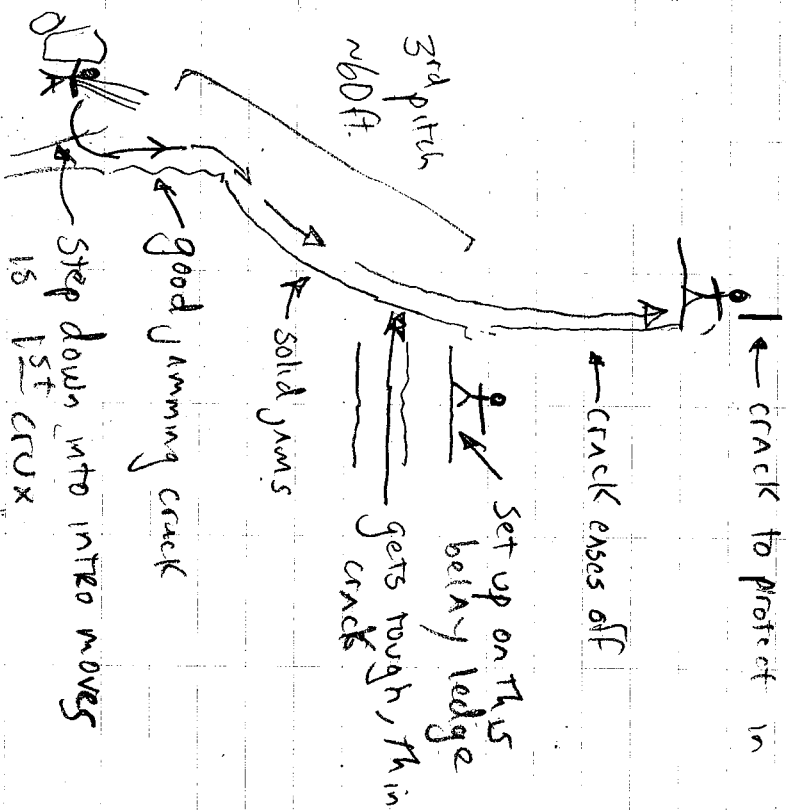 crack to protect in
crack eases off
Set up on this
belay ledge
3rd pitch
~60ft.
gets tough, thin
crack
solid jams
good jamming crack
Step down into intro moves
is 1st crux